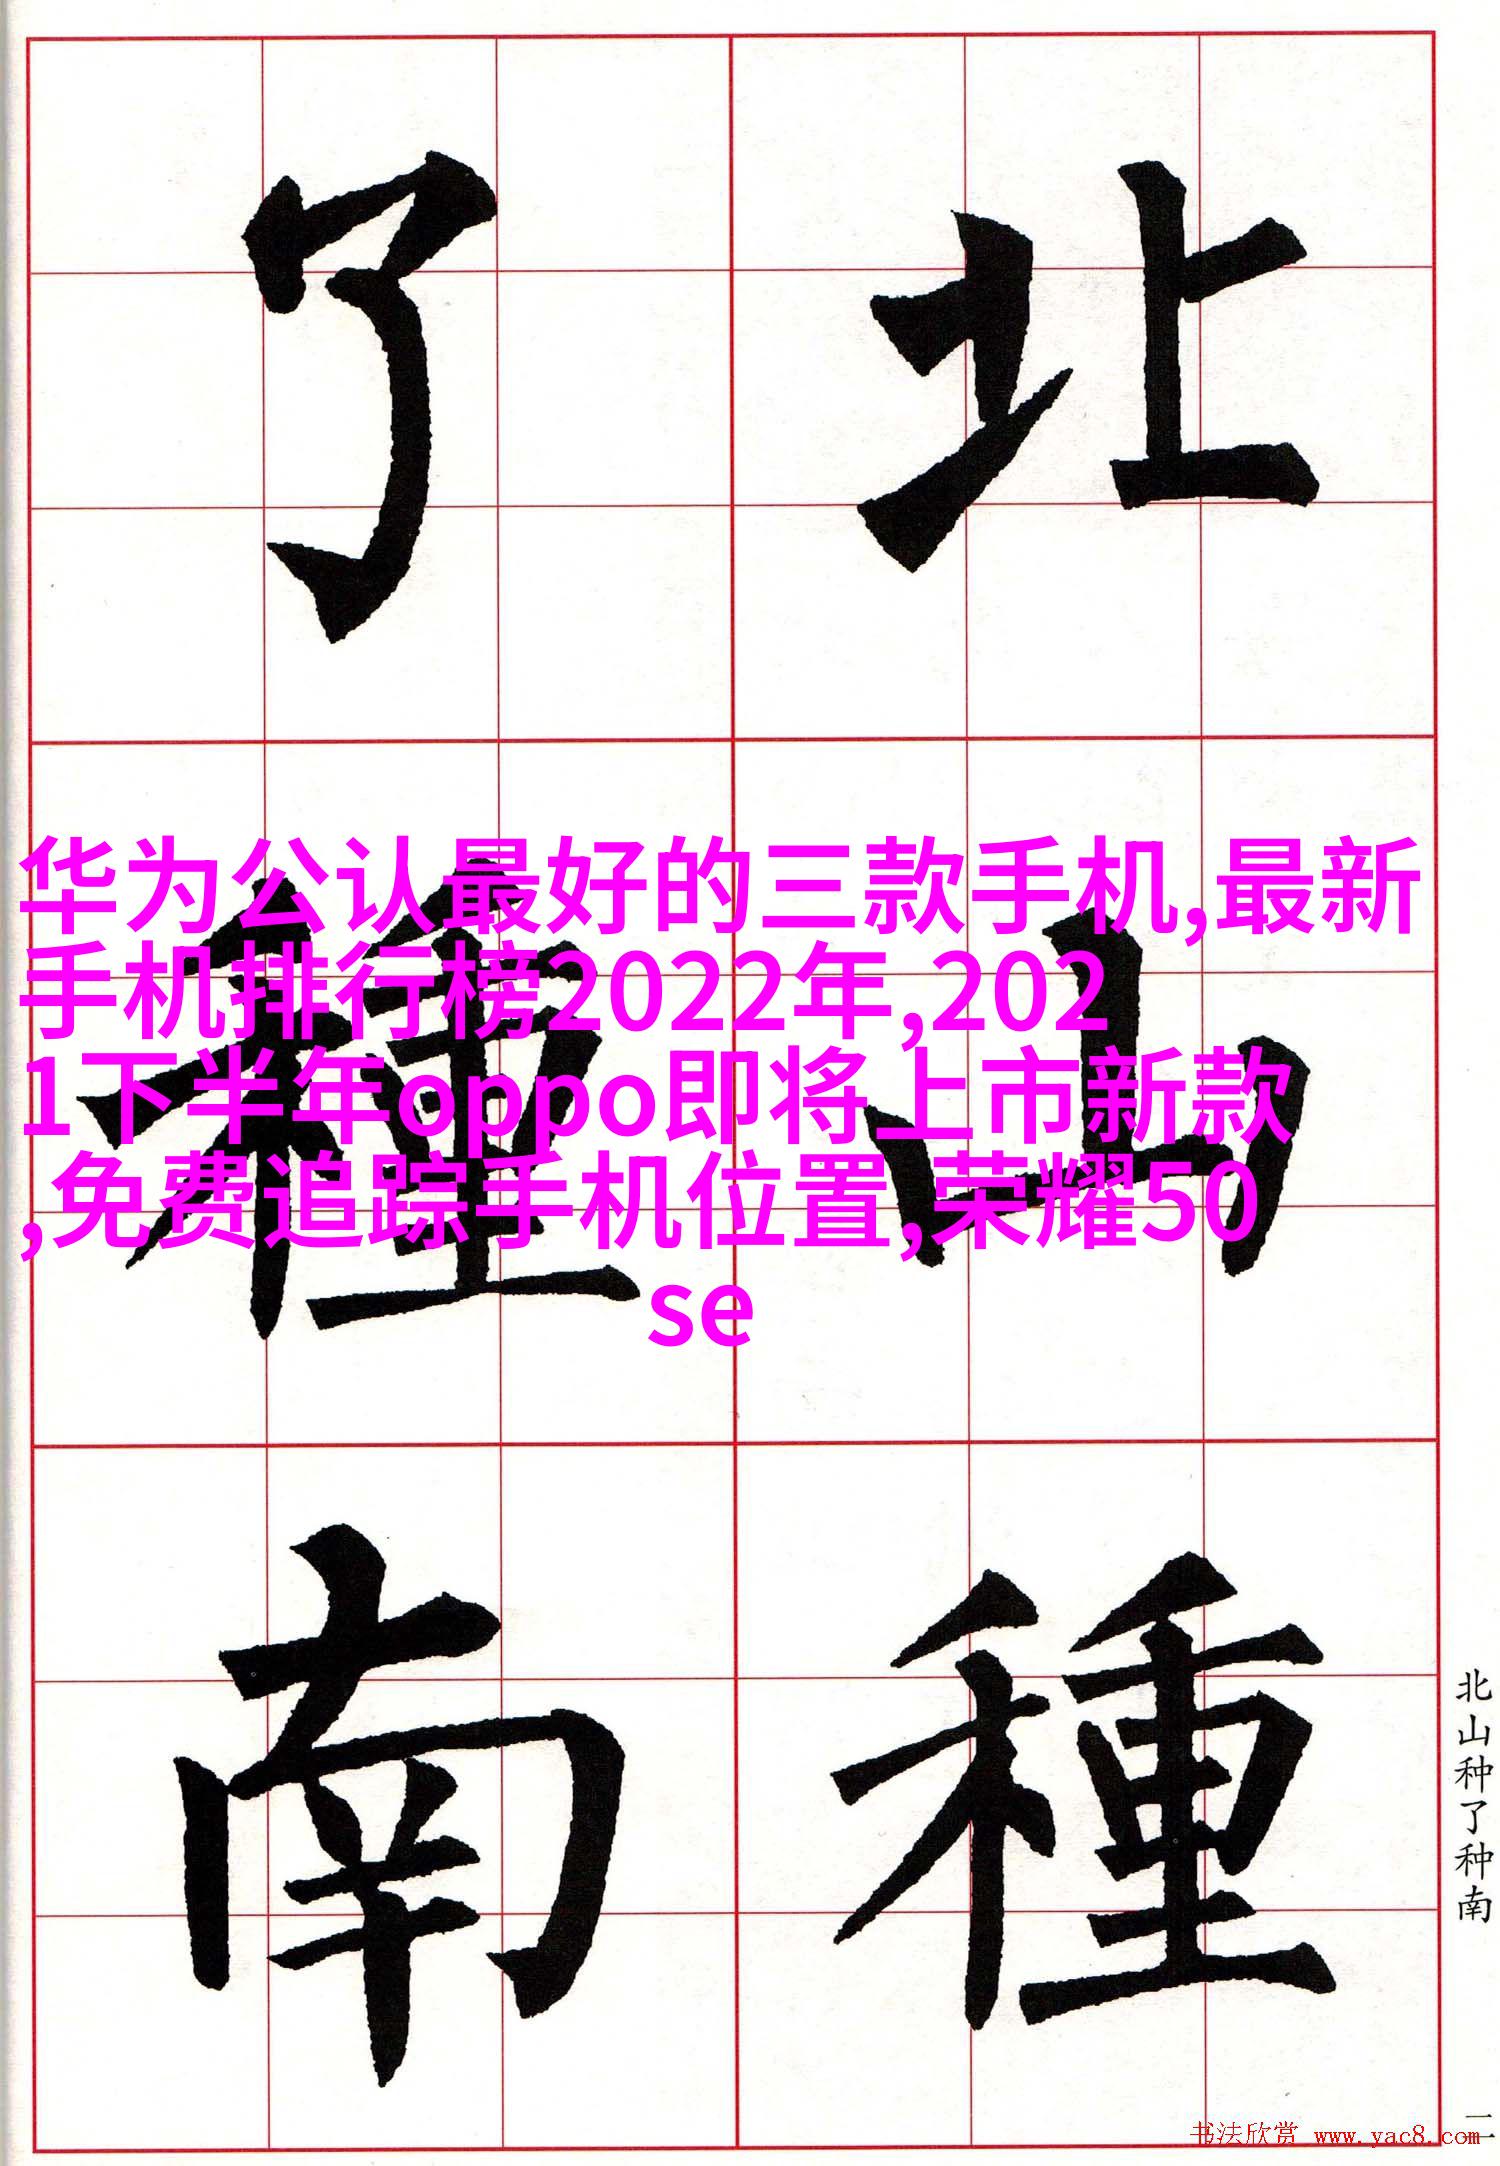 北山種
了種南
华为公认最好的三款手机,最新
手机排行榜2022年,202
1下半年oppo即将上市新款
,免费追踪手机位置,荣耀50
se
北山种了种南
二
书法欣赏 www.yac8.com